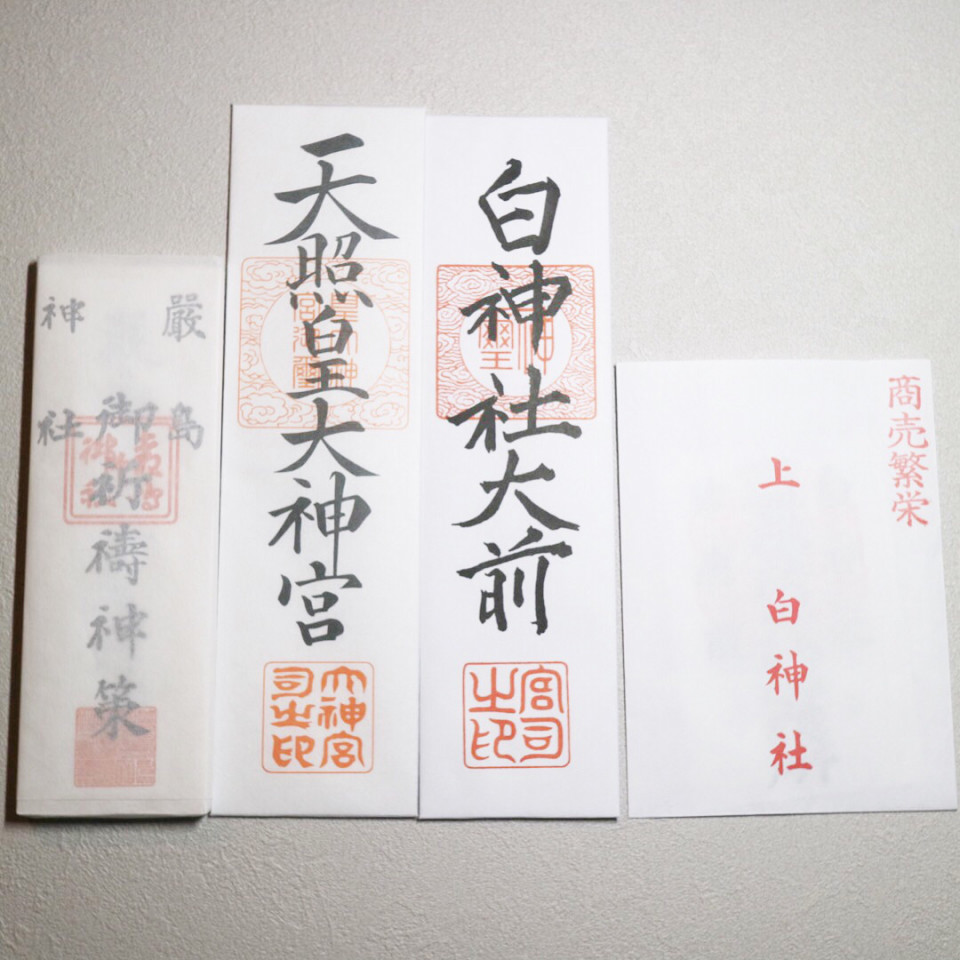 商売繁栄
上 白神社
白神社大前
神璽
宮司
之印
天照皇大神宮
大神宮
司之印
嚴島
神社
御祈禱神策